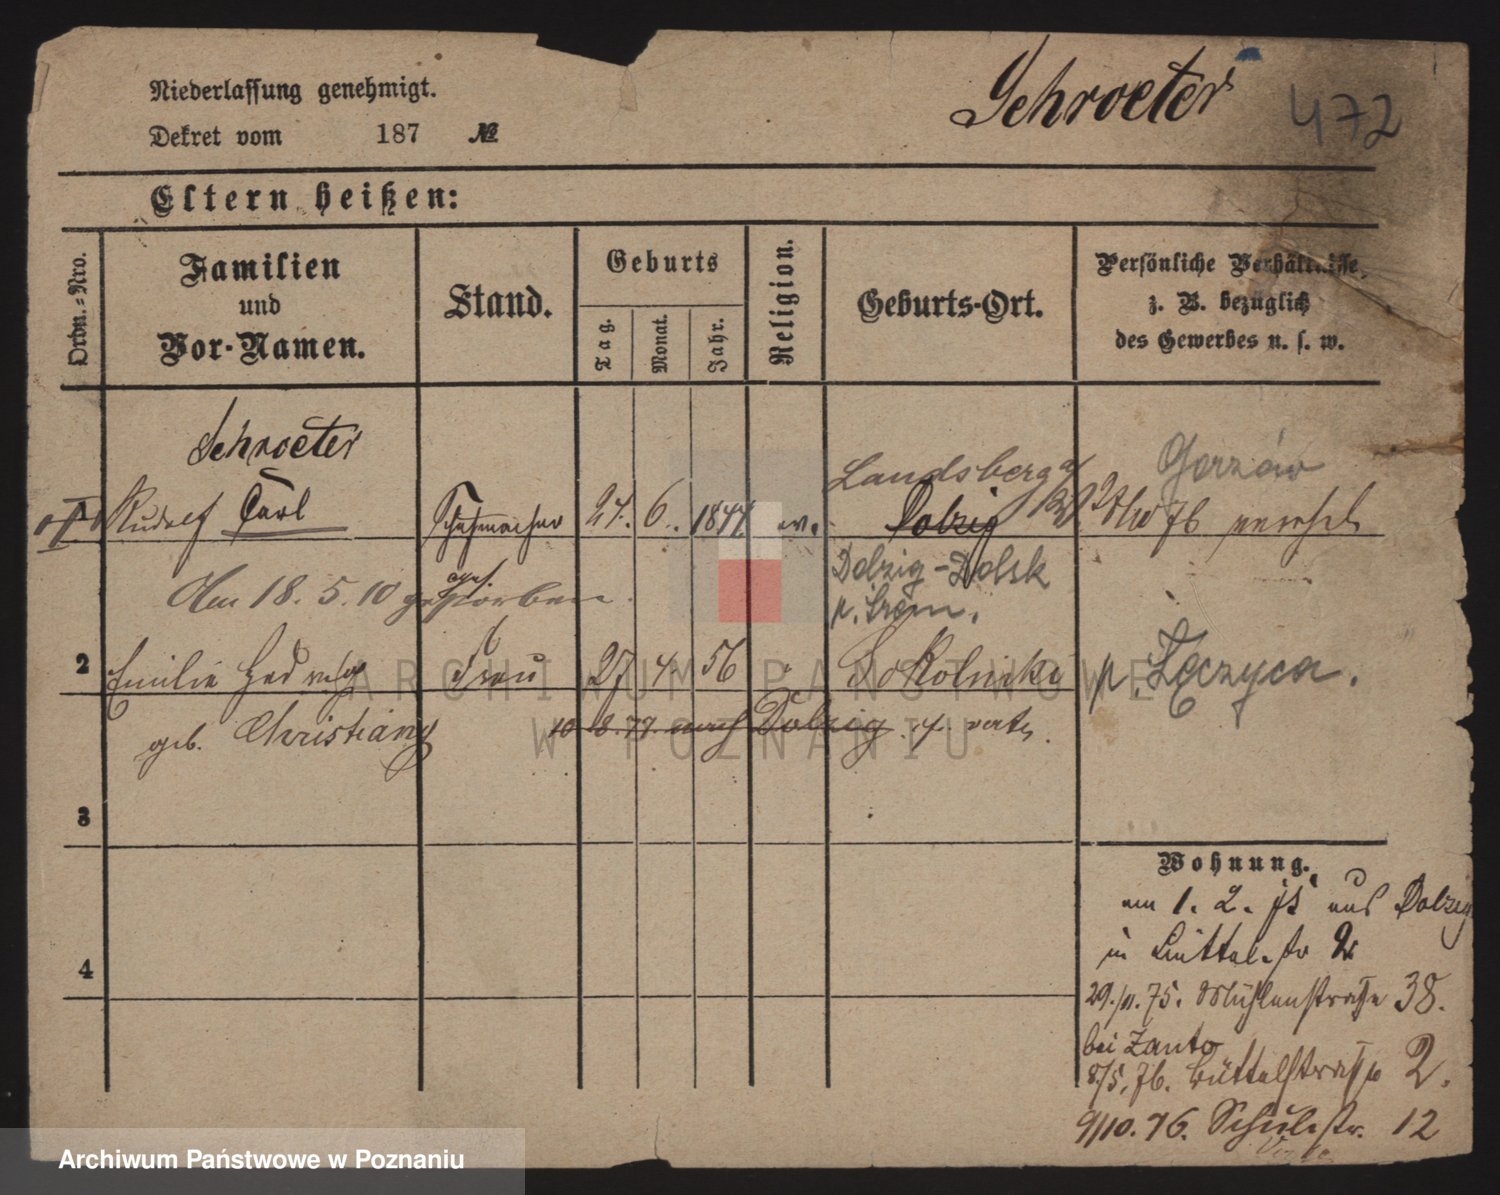 Niederlassung genehmigt.
Schroeter
472
Dekret vom 187 №
Eltern heißen:
Ordn.-Nro.
Familien
und
Vor-Namen.
Stand.
Geburts
Tag.
Monat.
Jahr.
Religion.
Geburts-Ort.
Persönliche Verhältnisse,
z. B. bezüglich
des Gewerbes u. s. w.
Schroeter
Landsberg a/
Gorzów
1 Rudolf Carl Schuhmacher 24. 6. 1844 ev. Dolzig
76 verehel
Dolzig-Dolsk
p. Śrem.
Am 18. 5. 10 gestorben.
2 Emilie Hedwig Frau 27 4. 56 Sokolniki
p. Łęczyca.
geb. Christiany
10 8. 77. nach Dolzig
3
4
Wohnung.
am 1. 2. 75 aus Dolzig
in Büttelstr 2
29./11. 75. Mühlenstraße 38.
bei Zanto
8/5. 76. Büttelstraße 2.
9/10. 76. Schulstr. 12
ARCHIWUM PAŃSTWOWE
W POZNANIU
Archiwum Państwowe w Poznaniu